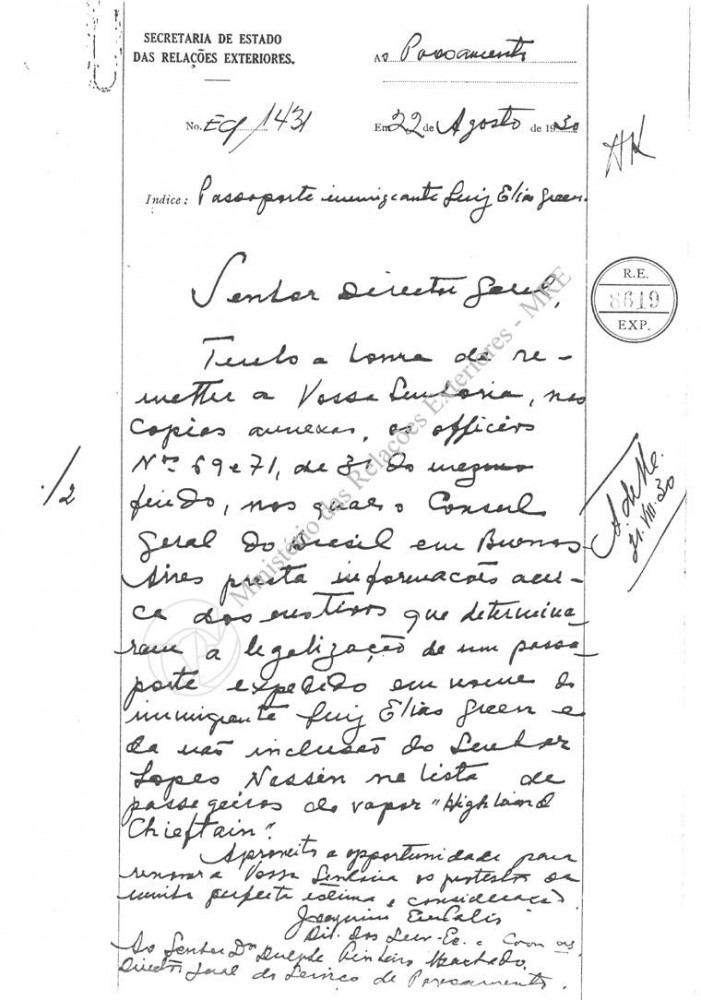 SECRETARIA DE ESTADO
DAS RELAÇÕES EXTERIORES.
Ao Povoamento
No. EC/1431
Em 22 de Agosto de 1930
Indice: Passaporte immigrante Luiz Elias Green.
R.E.
8619
EXP.
Senhor Director Geral,
Tenho a honra de re-
metter a Vossa Senhoria, nas
copias annexas, os officios
Nos 69 e 71, de 31 do mez
findo, nos quaes o Consul
Geral do Brasil em Buenos
Aires presta informações acer-
ca dos motivos que determina-
ram a legalização de um passa-
porte expedido em nome do
immigrante Luiz Elias Green e
da não inclusão do Senhor
Lopes Nassin na lista de
passageiros do vapor "Highland
Chieftain".
Aproveito a opportunidade para
renovar a Vossa Senhoria os protestos da
minha perfeita estima e consideração.
Joaquim Eulalio
Dir. dos Serv. Ec. e Com.
Ao Senhor Dr Dulphe Pinheiro Machado,
Director Geral do Serviço de Povoamento.
1/2
31.VIII.30
Ministério das Relações Exteriores - MRE